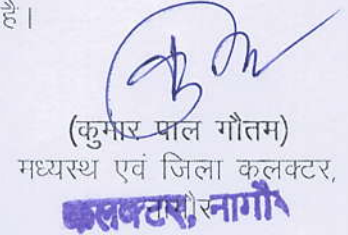 हैं।
(कुमार पाल गौतम)
मध्यस्थ एवं जिला कलक्टर,
नागौर
कलक्टर, नागौर